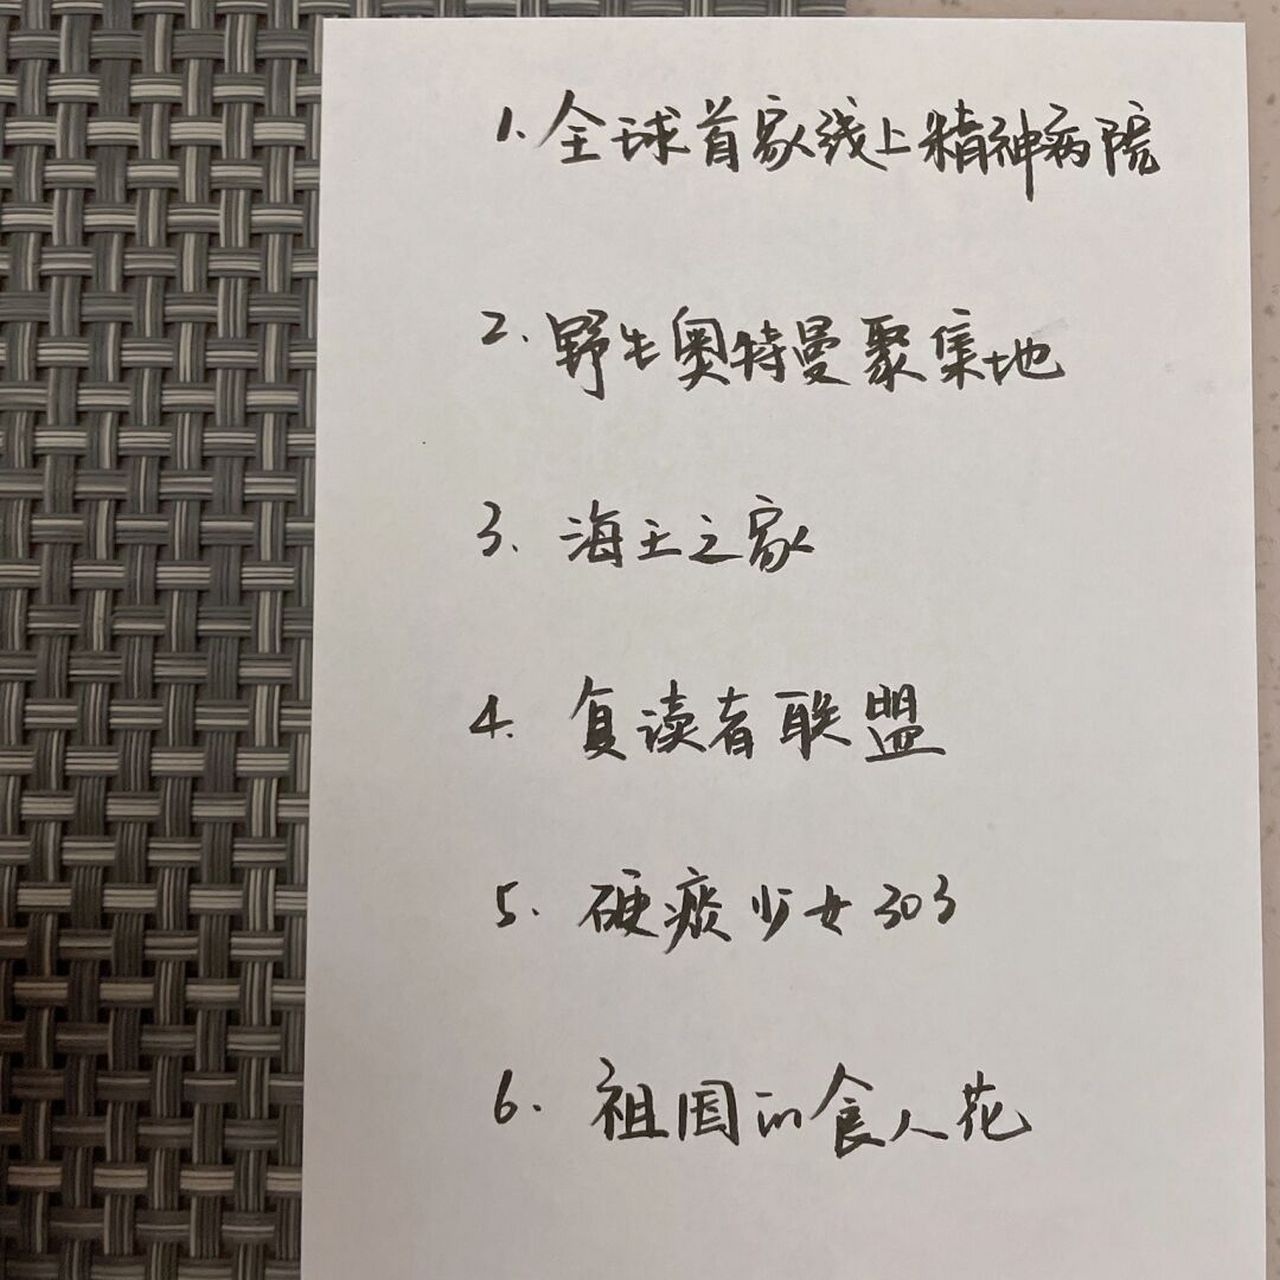 1. 全球首家线上精神病院
2. 野生奥特曼聚集地
3. 海王之家
4. 复读者联盟
5. 硬痰少女303
6. 祖国的食人花